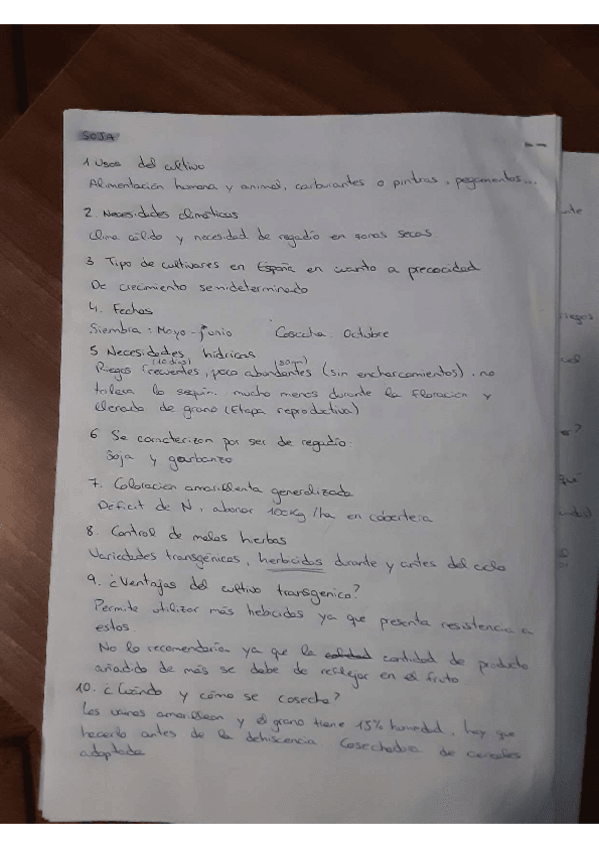 SOJA
1 Usos del cultivo
Alimentación humana y animal, carburantes o pinturas, pegamentos...
2. Necesidades climáticas
Clima cálido y necesidad de regadío en zonas secas
3 Tipo de cultivares en España en cuanto a precocidad
De crecimiento semideterminado
4. Fechas
Siembra: Mayo-junio Cosecha: Octubre
5 Necesidades hídricas
(10 días)
Riegos frecuentes, poco abundantes (sin encharcamientos). no
tolera la sequía, mucho menos durante la floración y
llenado de grano (Etapa reproductiva)
6 Se caracterizan por ser de regadío:
Soja y garbanzo
7. Coloración amarillenta generalizada
Deficit de N, abonar 100Kg/ha en cobertera
8. Control de malas hierbas
Variedades transgénicas, herbicidas durante y antes del ciclo
9. ¿Ventajas del cultivo transgénico?
Permite utilizar más hebicidas ya que presenta resistencia a
estos.
No lo recomendaría ya que la calidad cantidad de producto
añadido de más se debe de reflejar en el fruto
10. ¿Cuándo y cómo se cosecha?
Las vainas amarillean y el grano tiene 15% humedad, hay que
hacerlo antes de la dehiscencia Cosechadora de cereales
adaptada